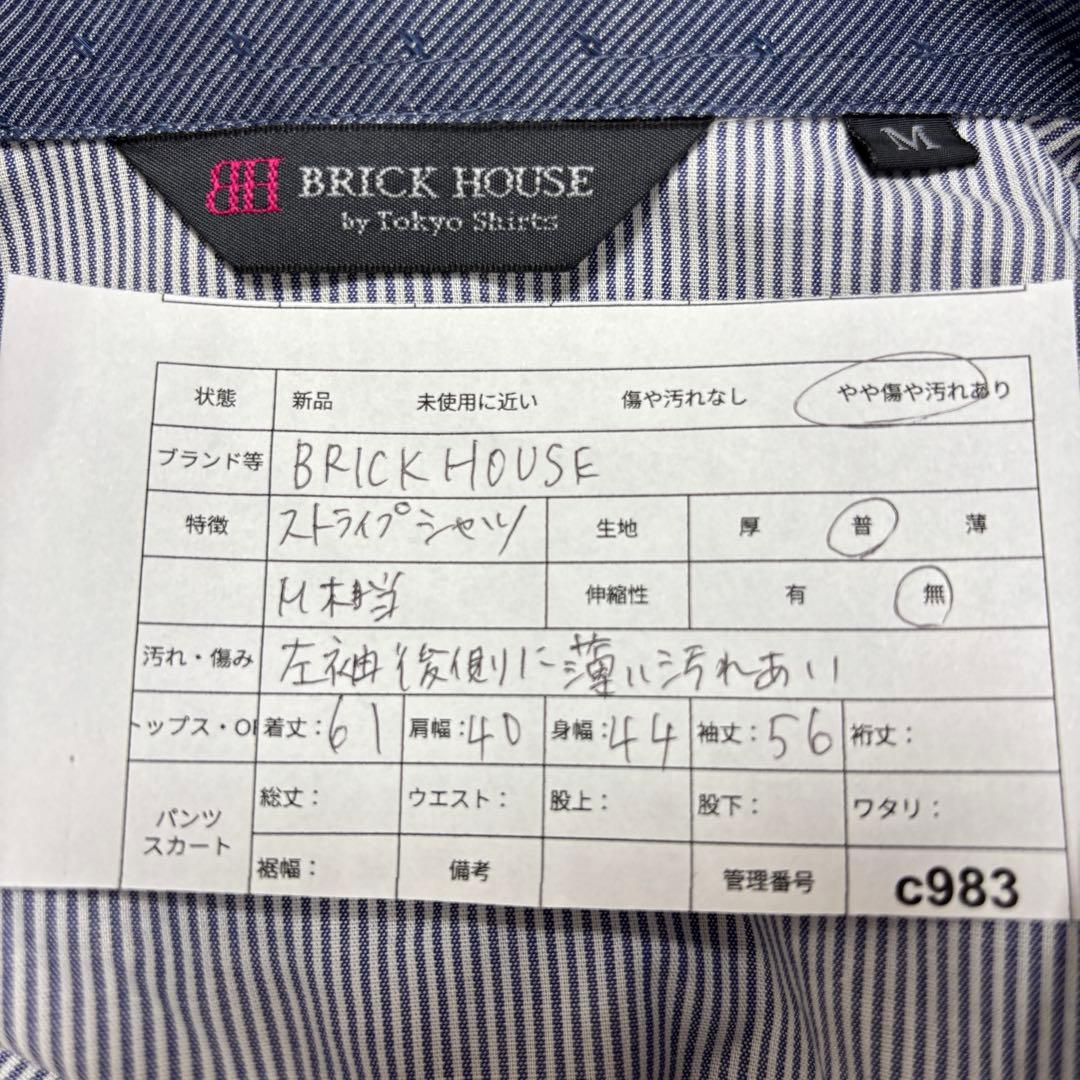 BH BRICK HOUSE
by Tokyo Shirts
M
状態 新品 未使用に近い 傷や汚れなし やや傷や汚れあり
ブランド等 BRICK HOUSE
特徴 ストライプシャツ 生地 厚 普 薄
M相当 伸縮性 有 無
汚れ・傷み 左袖後側に薄い汚れあい
トップス・OP 着丈:61 肩幅:40 身幅:44 袖丈:56 裄丈:
パンツ スカート 総丈: ウエスト: 股上: 股下: ワタリ:
裾幅: 備考 管理番号 c983